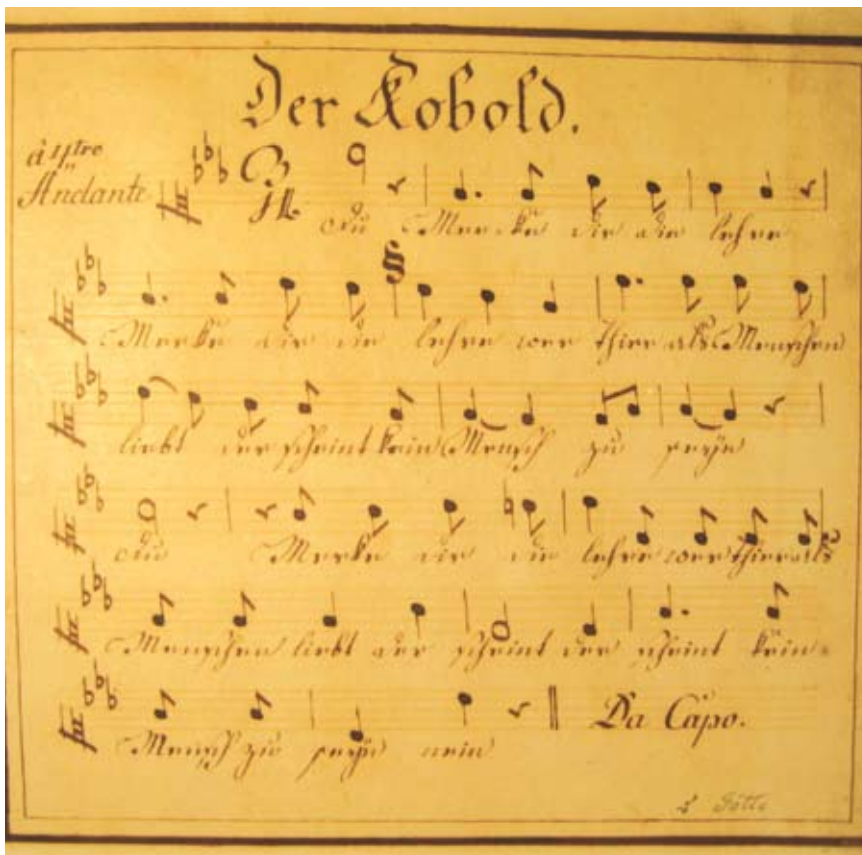 Der Kobold.
à 4tro
Andante
Du Merke dir die lehre
Merke dir die lehre wer thier als Menschen
liebt der scheint kein Mensch zu seyn
Du Merke dir die lehre wer thier als
Menschen liebt der scheint der scheint kein
Mensch zu seyn nein
Da Capo.